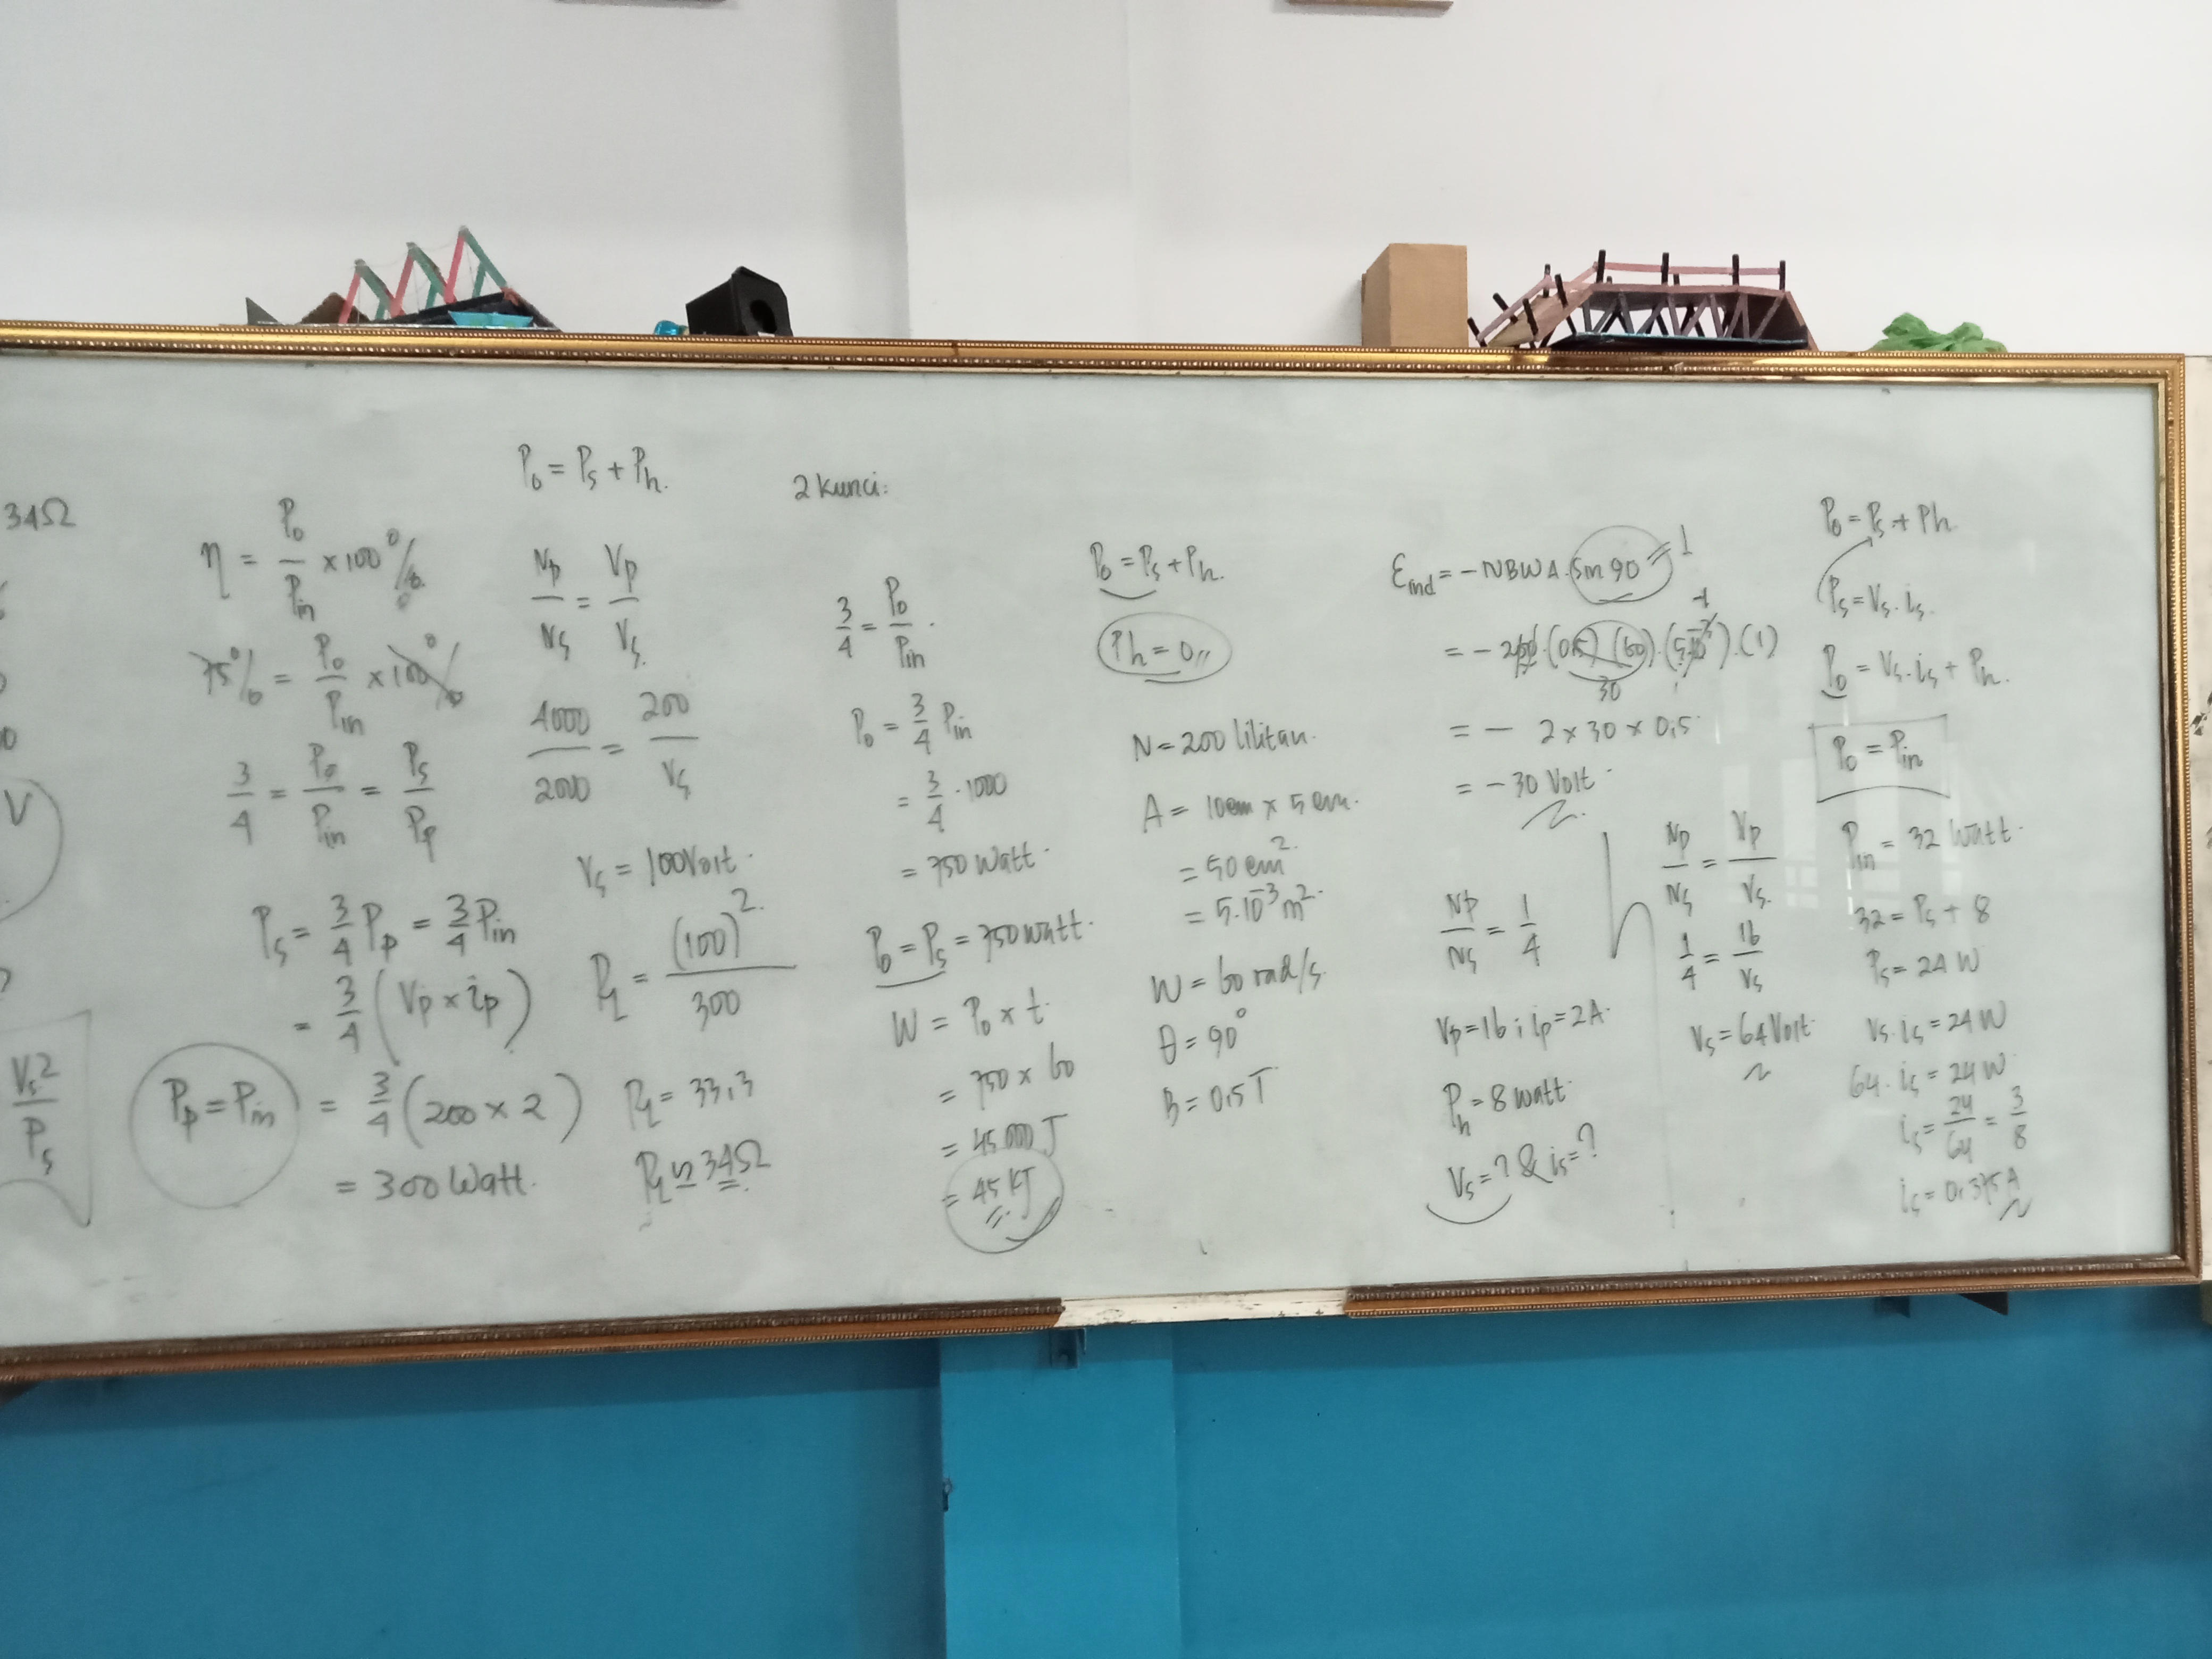 34Ω
V
Vs²/Ps
η = Po/Pin × 100%
75% = Po/Pin × 100%
3/4 = Po/Pin = Ps/Pp
Ps = 3/4 Pp = 3/4 Pin
= 3/4 (Vp × ip)
Pp = Pin = 3/4 (200 × 2)
= 300 Watt.
Po = Ps + Ph.
Np/Ns = Vp/Vs.
4000/2000 = 200/Vs
Vs = 100 Volt.
= (100)²/300
= 33,3
≈ 34Ω
2 Kunci:
3/4 = Po/Pin.
Po = 3/4 Pin
= 3/4 . 1000
= 750 Watt.
Po = Ps = 750 watt.
W = Po × t.
= 750 × 60
= 45.000 J
= 45 KJ
Po = Ps + Ph.
Ph = 0,,
N = 200 lilitan.
A = 10 cm × 5 cm.
= 50 cm².
= 5.10⁻³ m².
W = 60 rad/s.
θ = 90°
B = 0,5 T
Eind = -NBWA. Sin 90 = 1
= - 200 (0,5) (60) . (5.10⁻³) . (1)
30
= - 2 × 30 × 0,5
= -30 Volt.
Np/Ns = 1/4
Vp = 16 ; ip = 2A.
Ph = 8 watt.
Vs = ? & is = ?
Np/Ns = Vp/Vs.
1/4 = 16/Vs
Vs = 64 Volt.
Po = Ps + Ph
Ps = Vs . is.
Po = Vs . is + Ph.
Po = Pin
Pin = 32 Watt.
32 = Ps + 8
Ps = 24 W
Vs . is = 24 W
64 . is = 24 W
is = 24/64 = 3/8
is = 0,375 A